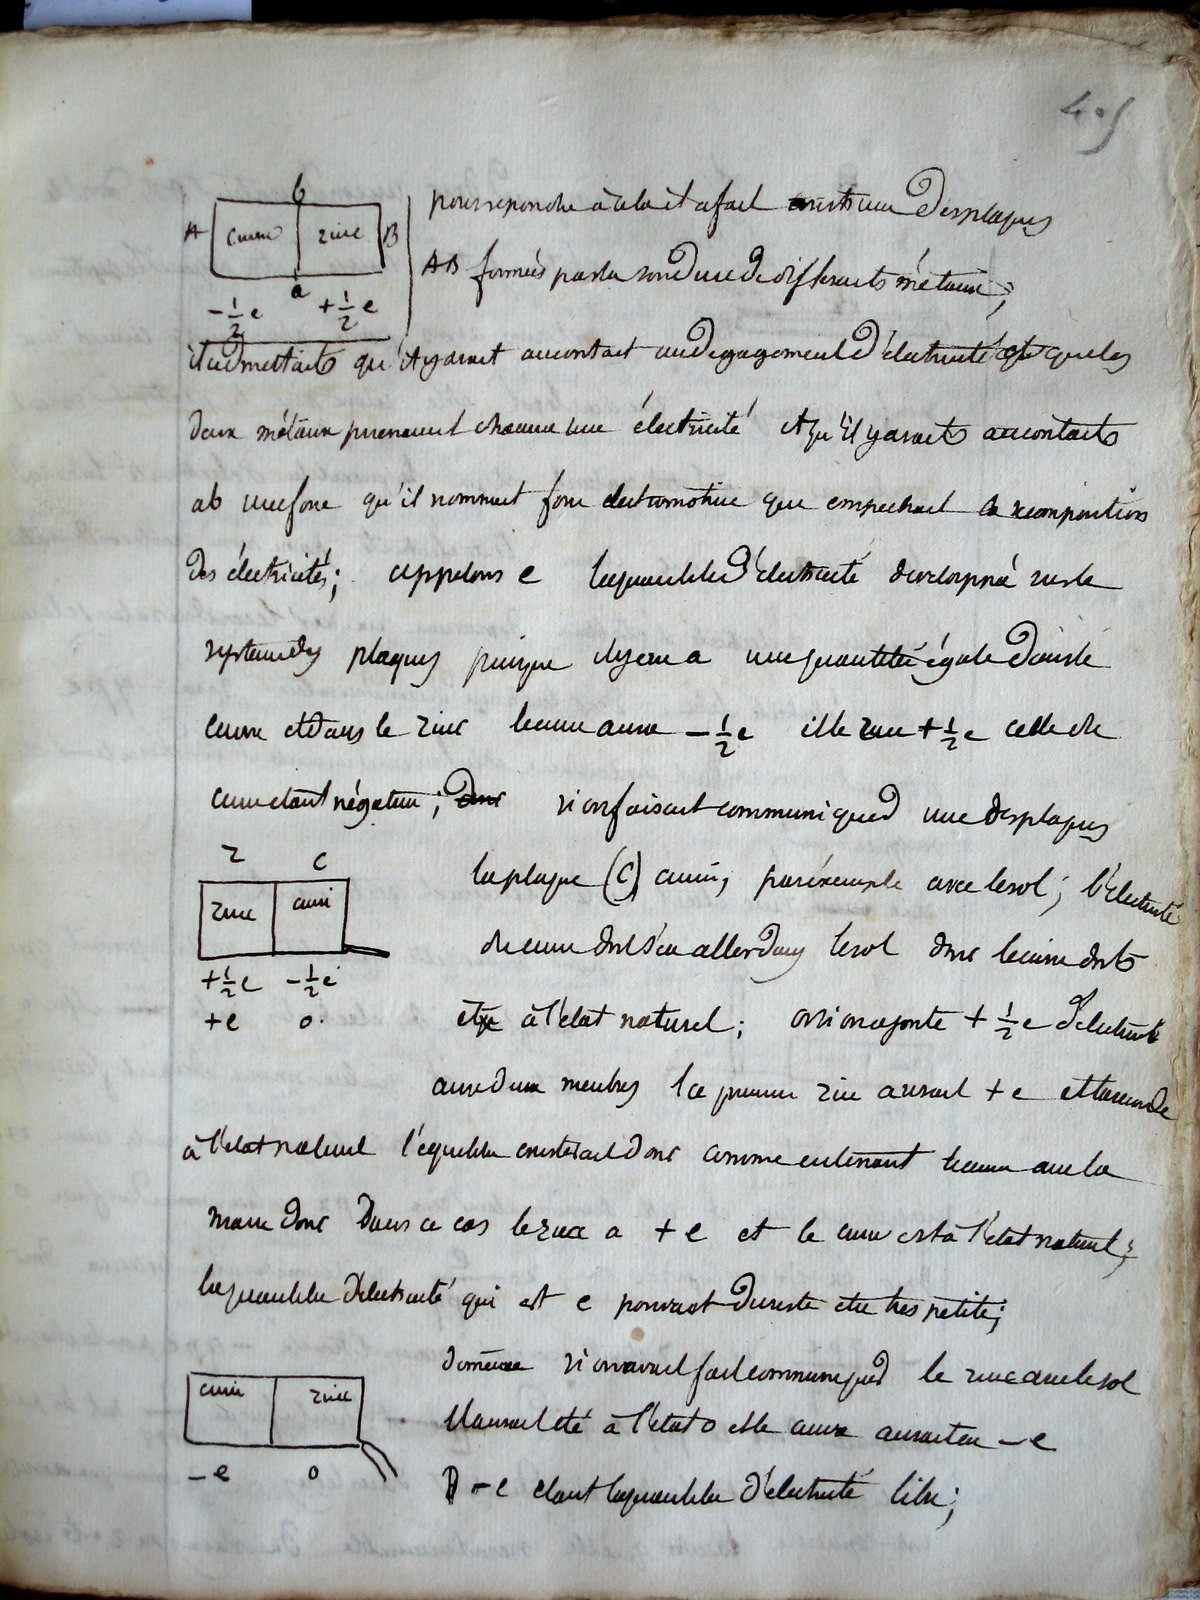 405
b
A cuivre zinc B
a
-1/2 e +1/2 e
pour repondre à cela il a fait construire des plaques
AB formées par la soudure de differents métaux;
il admettait qu'il y avait au contact un degagement d'électricité que les
deux métaux prenaient chacun une électricité et qu'il y avait au contact
ab une force qu'il nommait force electromotrice qui empechait la recomposition
des électricités; appelons e la quantité d'électricité developpée sur le
systeme des plaques puisque il y en a une quantité égale dans le
cuivre et dans le zinc le cuivre aura -1/2 e et le zinc +1/2 e celle du
cuivre etant négative; donc si on faisait communiquer une des plaques
z c
zinc cuivre
+1/2 e -1/2 e
+e 0.
la plaque (C) cuivre, par exemple avec le sol; l'électricité
du cuivre doit s'en aller dans le sol donc le cuivre doit
etre à l'état naturel; or si on ajoute +1/2 e d'électricité
aux deux membres le premier zinc aurait +e et le second
à l'état naturel l'equilibre existerait donc comme en tenant le cuivre avec la
main donc dans ce cas le zinc a +e et le cuivre est à l'état naturel;
la quantité d'électricité qui est e pouvant du reste etre tres petite;
cuivre zinc
-e 0
de même si on avait fait communiquer le zinc avec le sol
il aurait été à l'état 0 et le cuivre aurait eu -e
-e etant la quantité d'électricité libre;